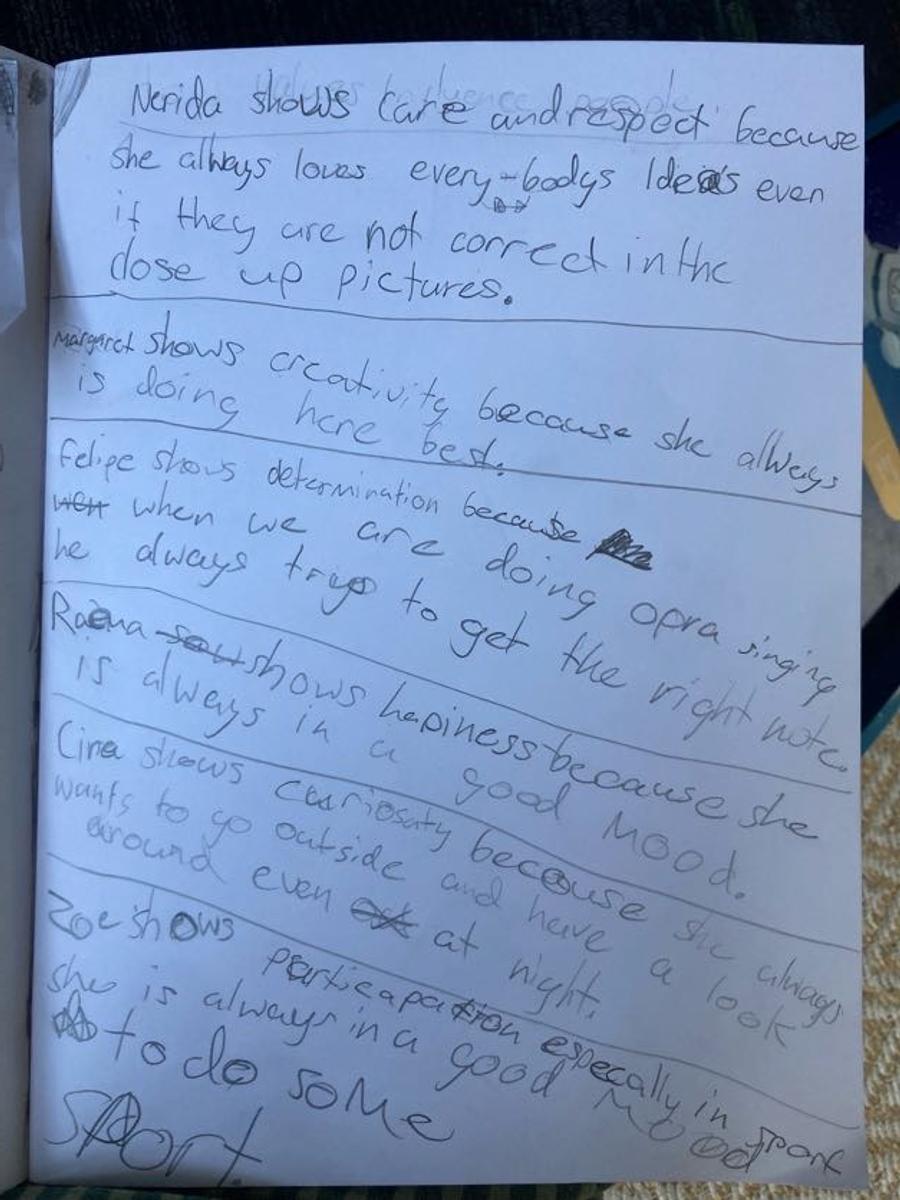 Nerida shows care and respect because
she always loves every-bodys Ideas even
if they are not correct in the
close up pictures.
Margaret shows creativity because she always
is doing here best.
Felipe shows determination because
when we are doing opra singing
he always trys to get the right note.
Raena shows hapiness because she
is always in a good mood.
Cira shows curiosaty because she always
wants to go outside and have a look
around even at night.
Zoe shows particapation especally in sport
she is always in a good mood
to do some
sport.